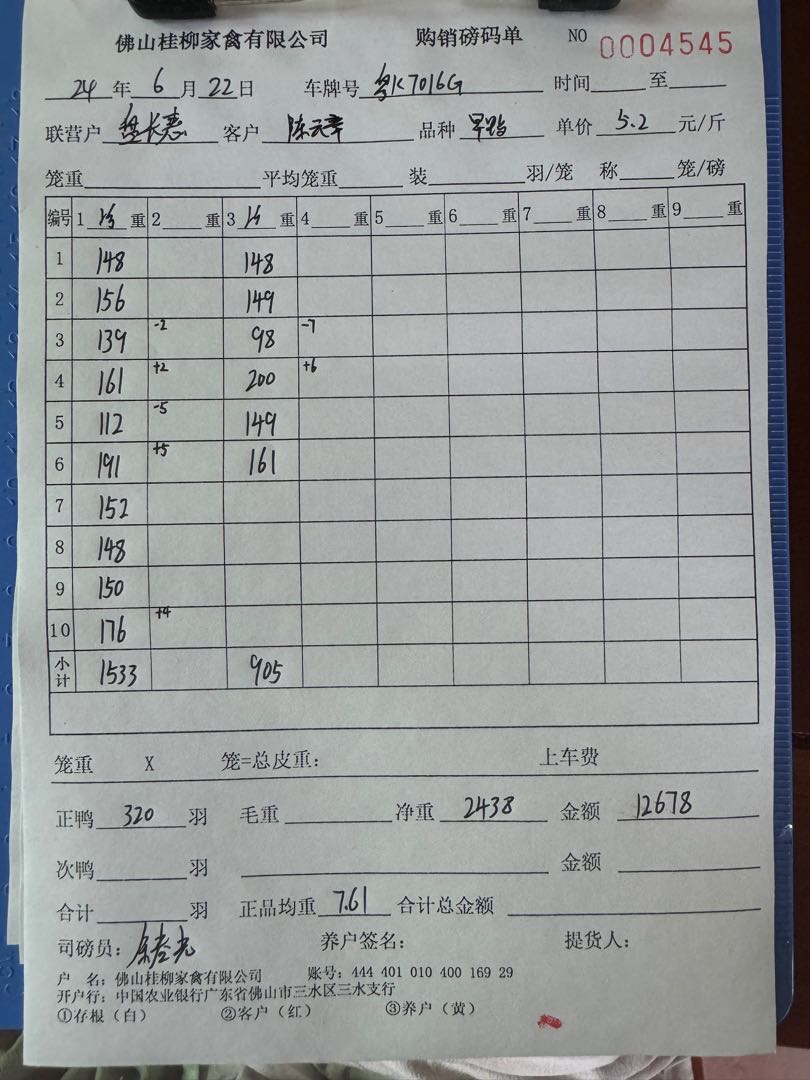 佛山桂柳家禽有限公司 购销磅码单 NO 0004545
24 年 6 月 22 日 车牌号 粤K7016G 时间 至
联营户 客户 陈天章 品种 单价 5.2 元/斤
笼重 平均笼重 装 羽/笼 称 笼/磅
编号 1 重 2 重 3 重 4 重 5 重 6 重 7 重 8 重 9 重
1 148 148
2 156 149
3 139 -2 98 -7
4 161 +2 200 +6
5 112 -5 149
6 191 +5 161
7 152
8 148
9 150
10 176 +4
小计 1533 905
笼重 X 笼=总皮重: 上车费
正鸭 320 羽 毛重 净重 2438 金额 12678
次鸭 羽 金额
合计 羽 正品均重 7.61 合计总金额
司磅员: 养户签名: 提货人:
户 名: 佛山桂柳家禽有限公司 账号: 444 401 010 400 169 29
开户行: 中国农业银行广东省佛山市三水区三水支行
①存根(白) ②客户(红) ③养户(黄)